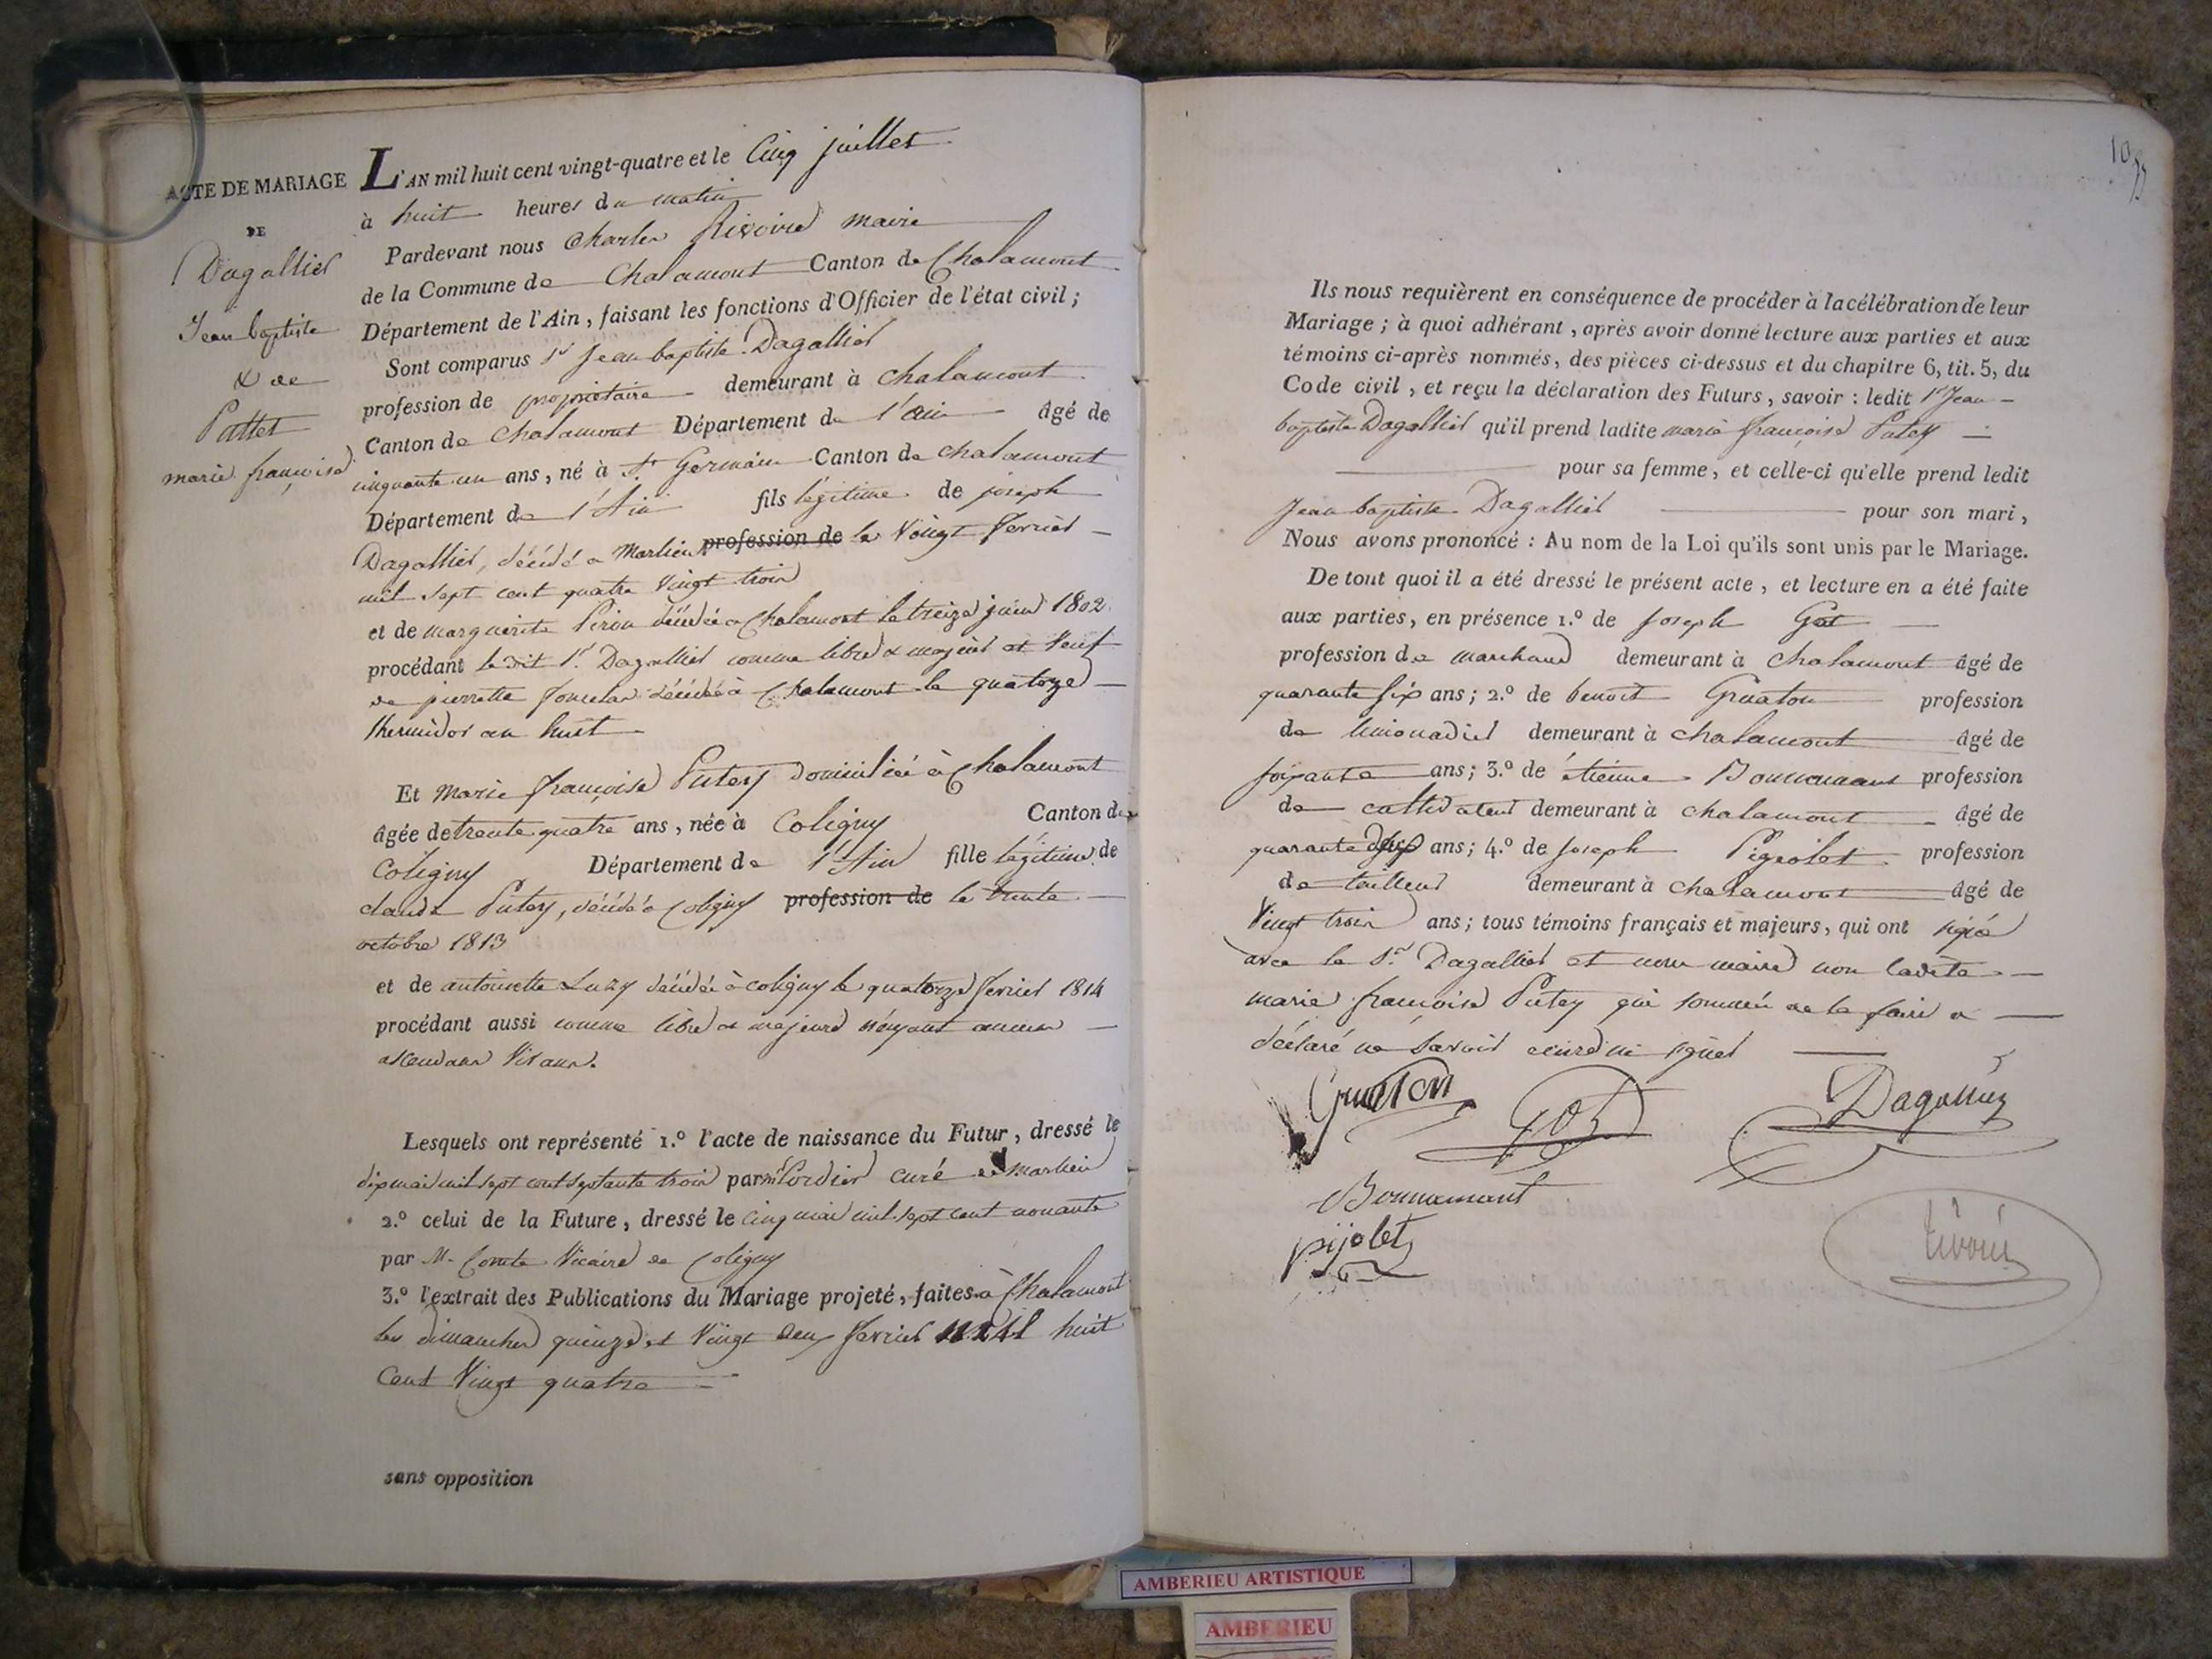 ACTE DE MARIAGE
DE
Dagallier
Jean baptiste
& de
Puttet
marie françoise
L'AN mil huit cent vingt-quatre et le Cinq juillet
à huit heures du matin
Pardevant nous Charles Rivoire maire
de la Commune de Chalamont Canton de Chalamont
Département de l'Ain, faisant les fonctions d'Officier de l'état civil;
Sont comparus Sr Jean baptiste Dagallier
profession de propriétaire demeurant à chalamont
Canton de chalamont Département de l'ain âgé de
cinquante un ans, né à St Germain Canton de chalamont
Département de l'Ain fils légitime de joseph
Dagallier, décédé a Marlieu profession de le Vingt fevrier
mil sept cent quatre vingt trois
et de marguerite Piron décédée a Chalamont le treize juin 1802
procédant le dit Sr. Dagallier comme libre & majeur et veuf
de pierrette décédée à Chalamont le quatorze
thermidor an huit
Et Marie françoise Putey domiciliée à Chalamont
âgée de trente quatre ans, née à Coligny Canton de
Coligny Département de l'Ain fille légitime de
claude Putey, décédé a Coligny profession de le trente
octobre 1813
et de antoinette Luzy décédée à coligny le quatorze fevrier 1814
procédant aussi comme libre & majeure n'éyant aucun
ascendans vivans.
Lesquels ont représenté 1.º l'acte de naissance du Futur, dressé le
dix mai mil sept cent septante trois par mr Cordier curé de marlieu
2.º celui de la Future, dressé le cinq mai mil sept cent nonante
par M. Comte Vicaire de Coligny
3.º l'extrait des Publications du Mariage projeté, faites à Chalamont
les dimanches quinze et vingt deux fevrier mil huit
cent Vingt quatre
sans opposition
10
Ils nous requièrent en conséquence de procéder à la célébration de leur
Mariage; à quoi adhérant, après avoir donné lecture aux parties et aux
témoins ci-après nommés, des pièces ci-dessus et du chapitre 6, tit. 5, du
Code civil, et reçu la déclaration des Futurs, savoir: ledit Sr Jean
baptiste Dagallier qu'il prend ladite marie françoise Putey
pour sa femme, et celle-ci qu'elle prend ledit
Jean baptiste Dagallier pour son mari,
Nous avons prononcé: Au nom de la Loi qu'ils sont unis par le Mariage.
De tout quoi il a été dressé le présent acte, et lecture en a été faite
aux parties, en présence 1.º de Joseph Got
profession de marchand demeurant à chalamont âgé de
quarante six ans; 2.º de benoit Gruaton profession
de limonadier demeurant à chalamont âgé de
soixante ans; 3.º de étienne Bonnamant profession
de cultivateur demeurant à chalamont âgé de
quarante ans; 4.º de Joseph Pigeolet profession
de tailleur demeurant à chalamont âgé de
Vingt trois ans; tous témoins français et majeurs, qui ont signé
avec le Sr. Dagallier et nous maire non ladite
marie françoise Putey qui sommée de le faire a
déclaré ne savoir écrire ni signer
Gruaton
Got
Dagallier
Bonnamant
pijolet
Rivoire
AMBERIEU ARTISTIQUE
AMBERIEU